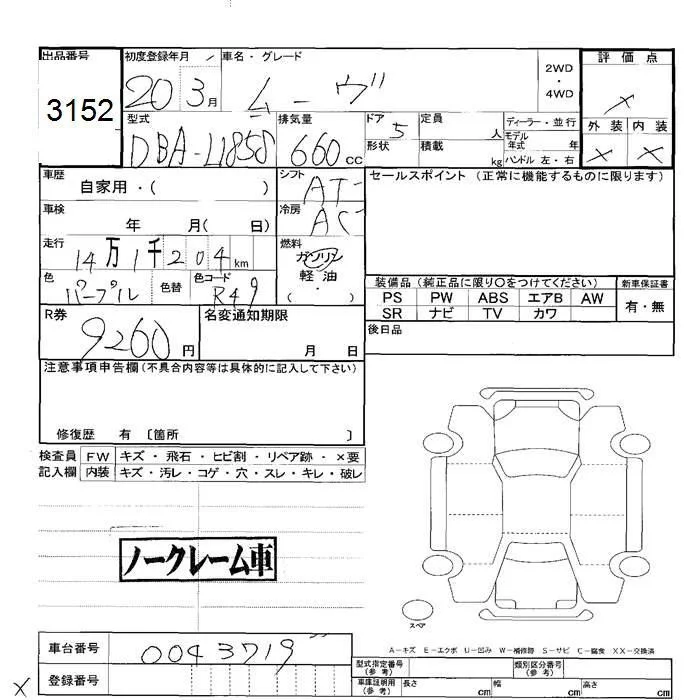 出品番号
3152
初度登録年月
20 3月
車名・グレード
ムーヴ
2WD
・
4WD
評価点
×
外装 内装
× ×
型式
DBA-L185S
排気量
660cc
ドア 5
形状
定員 人
積載 kg
ディーラー・並行
モデル年式 年
ハンドル 左・右
車歴
自家用・( )
シフト AT
車検
年 月( 日)
冷房 AC
走行
14万1千204km
燃料
ガソリン
軽油
・
( )
色
パープル
色替
色コード
R49
セールスポイント (正常に機能するものに限ります)
装備品 (純正品に限り○をつけてください)
PS PW ABS エアB AW
SR ナビ TV カワ
新車保証書
有・無
後日品
R券
9260円
名変通知期限
月 日
注意事項申告欄(不具合内容等は具体的に記入して下さい)
修復歴 有 〔箇所 〕
検査員 FW キズ・飛石・ヒビ割・リペア跡・×要
記入欄 内装 キズ・汚レ・コゲ・穴・スレ・キレ・破レ
ノークレーム車
スペア
A-キズ E-エクボ U-凹み W-補修跡 S-サビ C-腐食 XX-交換済
車台番号
0043719
登録番号
×
型式指定番号
(参考)
類別区分番号
(参考)
車庫証明用
(参考)
長さ cm 幅 cm 高さ cm